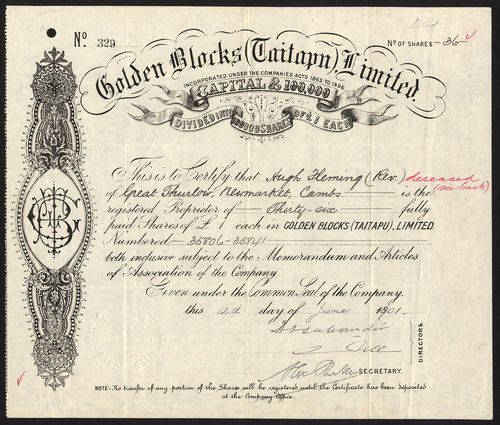 Nº 329
Nº OF SHARES -36-
Golden Blocks (Taitapu) Limited.
INCORPORATED UNDER THE COMPANIES ACTS 1863 TO 1896.
CAPITAL £100,000
DIVIDED INTO 100000 SHARES OF £1 EACH
This is to Certify that Hugh Fleming (Rev.) deceased
of Great Thurlow, Newmarket, Cambs is the (see back)
registered Proprietor of Thirty-six fully
paid Shares of £1 each in GOLDEN BLOCKS (TAITAPU), LIMITED.
Numbered 35806-35841
both inclusive subject to the Memorandum and Articles
of Association of the Company
Given under the Common Seal of the Company.
this 12th day of June 1901.
DIRECTORS.
SECRETARY.
NOTE: No transfer of any portion of the Shares will be registered until the Certificate has been deposited
at the Company Office.